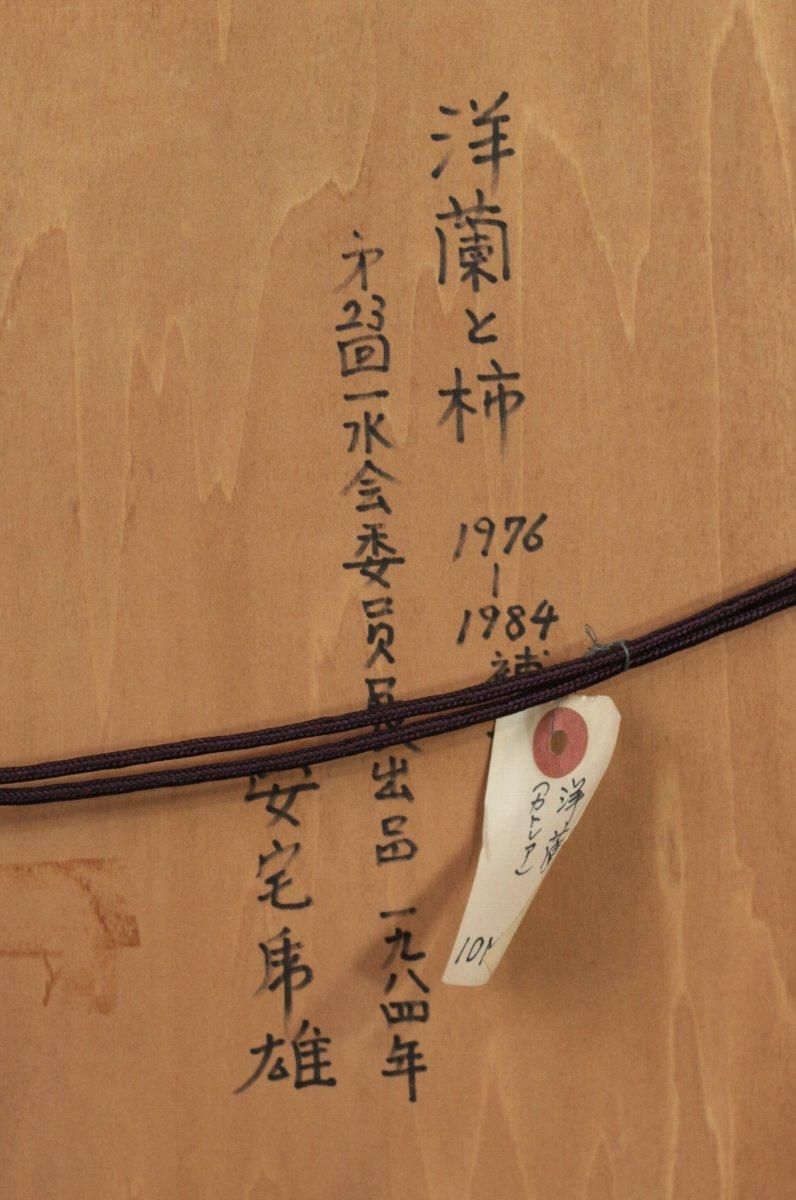 洋蘭と柿 1976-1984補
㐧23回一水会委員展出品 一九八四年
安宅乕雄
洋蘭
(カトレア)
10